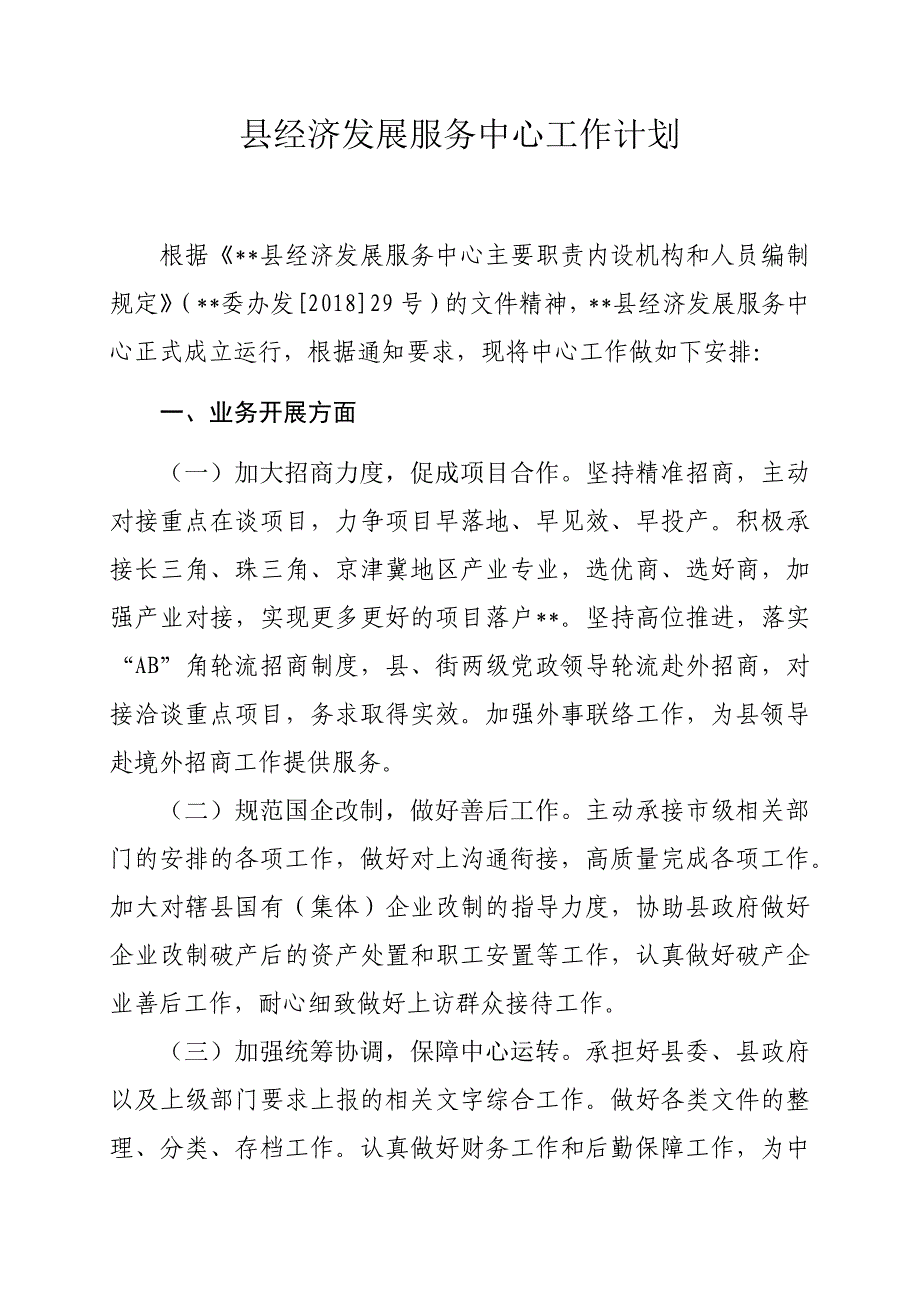 县经济发展服务中心工作计划
根据《**县经济发展服务中心主要职责内设机构和人员编制
规定》(**委办发[2018]29号)的文件精神，**县经济发展服务中
心正式成立运行，根据通知要求，现将中心工作做如下安排：
一、业务开展方面
（一）加大招商力度，促成项目合作。坚持精准招商，主动
对接重点在谈项目，力争项目早落地、早见效、早投产。积极承
接长三角、珠三角、京津冀地区产业专业，选优商、选好商，加
强产业对接，实现更多更好的项目落户**。坚持高位推进，落实
“AB”角轮流招商制度，县、街两级党政领导轮流赴外招商，对
接洽谈重点项目，务求取得实效。加强外事联络工作，为县领导
赴境外招商工作提供服务。
（二）规范国企改制，做好善后工作。主动承接市级相关部
门的安排的各项工作，做好对上沟通衔接，高质量完成各项工作。
加大对辖县国有（集体）企业改制的指导力度，协助县政府做好
企业改制破产后的资产处置和职工安置等工作，认真做好破产企
业善后工作，耐心细致做好上访群众接待工作。
（三）加强统筹协调，保障中心运转。承担好县委、县政府
以及上级部门要求上报的相关文字综合工作。做好各类文件的整
理、分类、存档工作。认真做好财务工作和后勤保障工作，为中